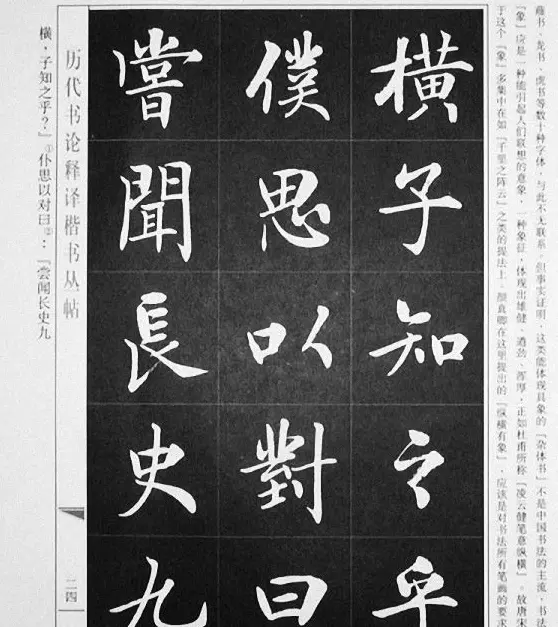 蘸书、龙书、虎书等数十种字体，与此不无联系。但事实证明，这类能体现具象的『杂体书』不是中国书法的主流，书法
『象』应是一种能引起人们联想的意象，一种象征，体现出雄健、遒劲、浑厚，正如杜甫所称『凌云健笔意纵横』。故唐宋
于这个『象』多集中在如『千里之阵云』之类的提法上。颜真卿在这里提出的『纵横有象』，应该是对书法所有笔画的要求
横子知之乎
僕思以對曰
嘗聞長史九
历代书论释译楷书丛帖
二四
横，子知之乎？』①仆思以对曰②：『尝闻长史九